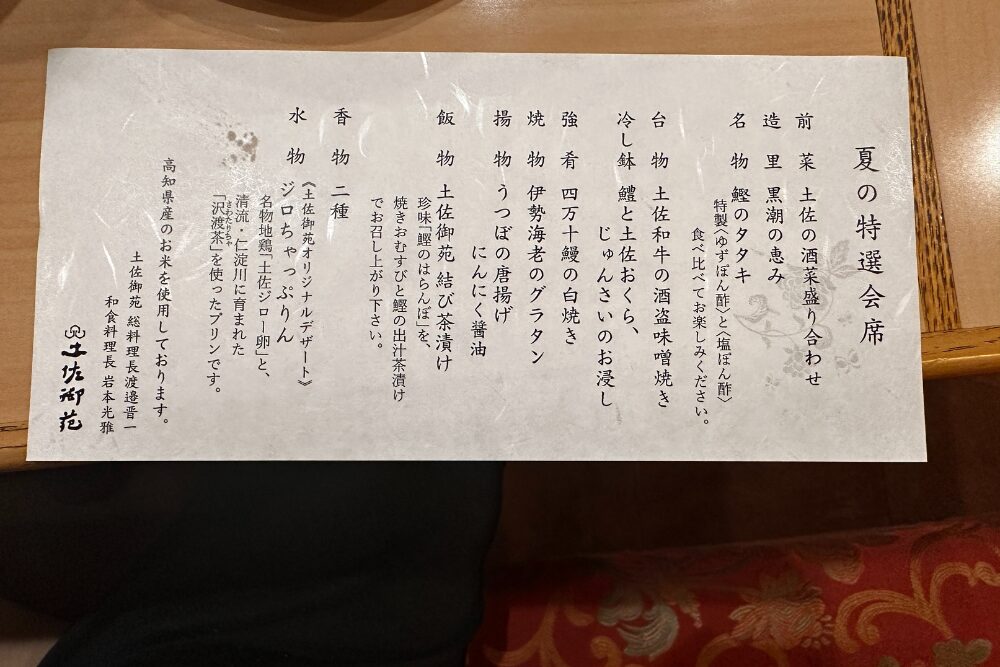 夏の特選会席
前菜 土佐の酒菜盛り合わせ
造里 黒潮の恵み
名物 鰹のタタキ
特製〈ゆずぽん酢〉と〈塩ぽん酢〉
食べ比べてお楽しみください。
台物 土佐和牛の酒盗味噌焼き
冷し鉢 鱧と土佐おくら、
じゅんさいのお浸し
強肴 四万十鰻の白焼き
焼物 伊勢海老のグラタン
揚物 うつぼの唐揚げ
にんにく醤油
飯物 土佐御苑 結び茶漬け
珍味「鰹のはらんぼ」を、
焼きおむすびと鰹の出汁茶漬け
でお召し上がり下さい。
香物 二種
水物 《土佐御苑オリジナルデザート》
ジロちゃっぷりん
名物地鶏「土佐ジロー卵」と、
清流・仁淀川に育まれた
「沢渡茶」を使ったプリンです。
さわたりちゃ
高知県産のお米を使用しております。
土佐御苑 総料理長 渡邉晋一
和食料理長 岩本光雅
土佐御苑